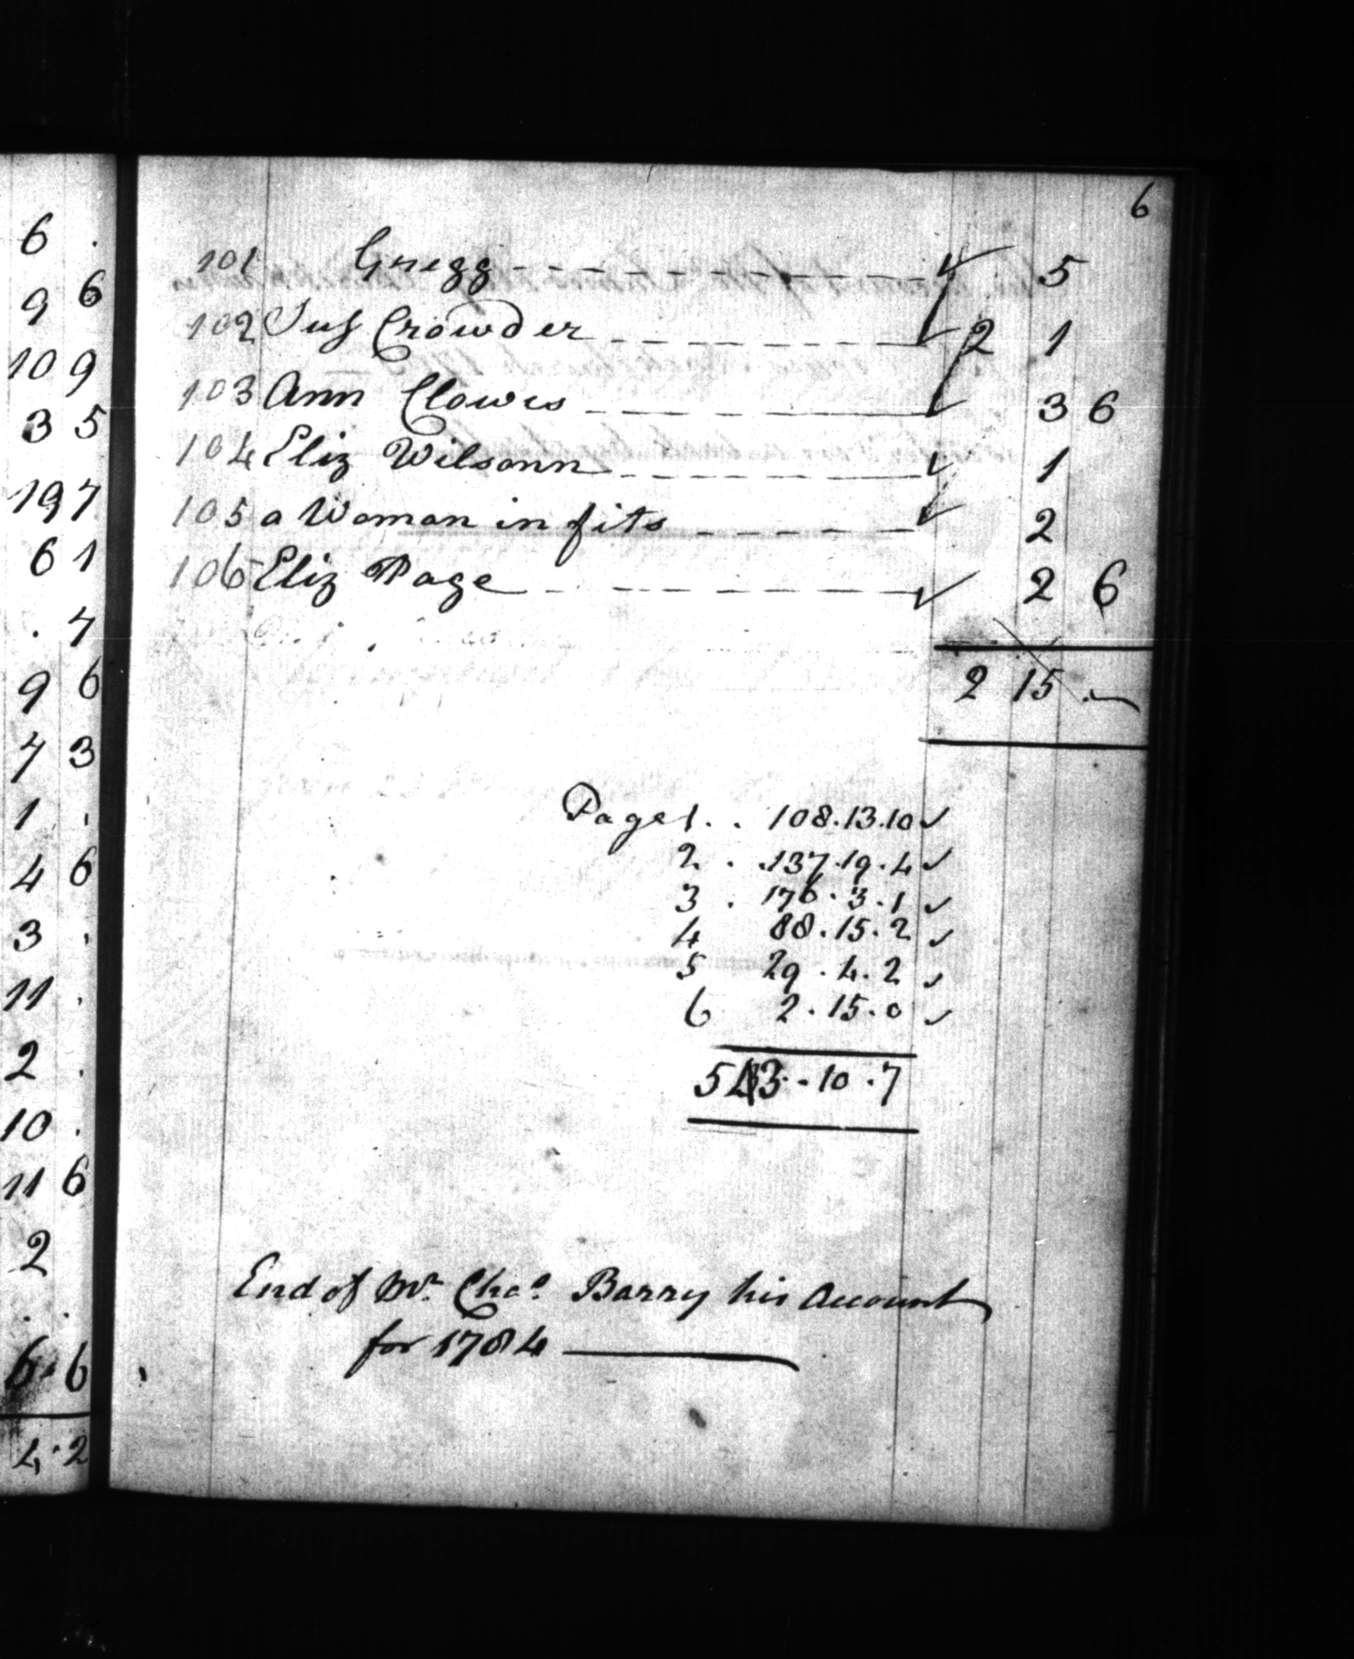 6 .
9 6
10 9
3 5
19 7
6 1
. 7
9 6
7 3
1 .
4 6
3 .
11 .
2 .
10 .
11 6
2
. .
6 . 6
4 . 2
6
101 Gregg 5
102 Crowder 2 1
103 Ann Clowes 3 6
104 Eliz Wilsonn 1
105 a Woman in fits 2
106 Eliz Page 2 6
2 15 . —
Page 1 . . 108 . 13 . 10 ✓
2 . . 137 . 19 . 4 ✓
3 . 176 . 3 . 1 ✓
4 88 . 15 . 2 ✓
5 29 . 4 . 2 ✓
6 2 . 15 . 0 ✓
543 . 10 . 7
End of Mr. Chas. Barry his Account
for 1784